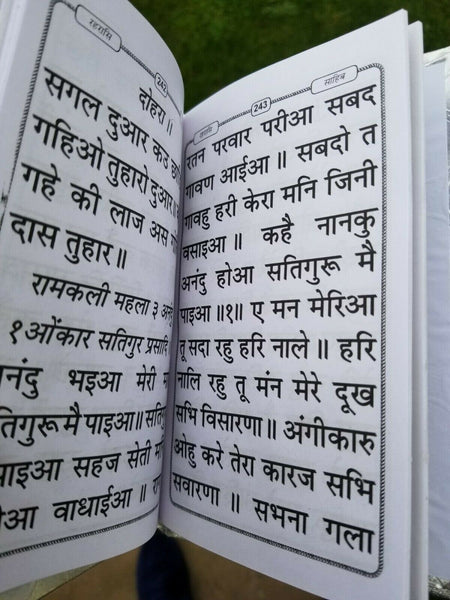 रहरासि
242
दोहरा॥
सगल दुआर कउ
गहिओ तुहारो दुआर॥
गहे की लाज अस
दास तुहार॥
रामकली महला ३
१ओंकार सतिगुर प्रसादि
भइआ मेरी
सतिगुरू मै पाइआ॥
सहज सेती
वाधाईआ॥
243
साहिब
रतन परवार परीआ सबद
गावण आईआ॥ सबदो त
गावहु हरी केरा मनि जिनी
वसाइआ॥ कहै नानकु
अनंदु होआ सतिगुरू मै
पाइआ॥१॥ ए मन मेरिआ
तू सदा रहु हरि नाले॥ हरि
नालि रहु तू मंन मेरे दूख
सभि विसारणा॥ अंगीकारु
ओहु करे तेरा कारज सभि
सवारणा॥ सभना गला